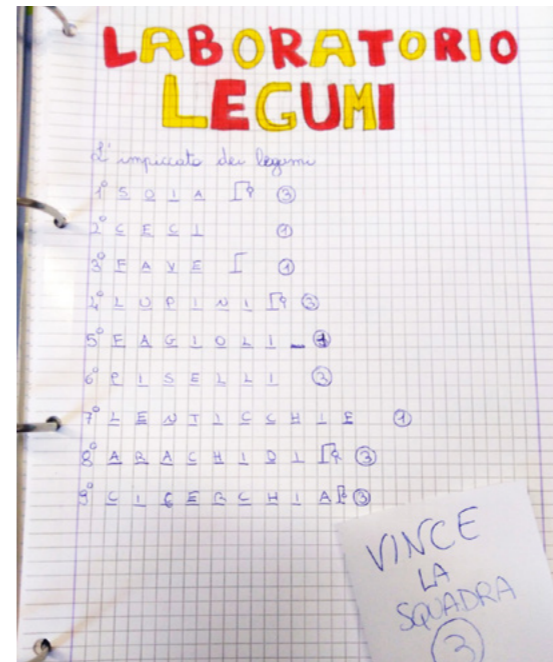 LABORATORIO
LEGUMI
L'impiccato dei legumi
1° SOIA 3
2° CECI 1
3° FAVE 1
4° LUPINI 3
5° FAGIOLI
6° PISELLI 3
7° LENTICCHIE 1
8° ARACHIDI 3
9° CICERCHIA 3
VINCE
LA
SQUADRA
3